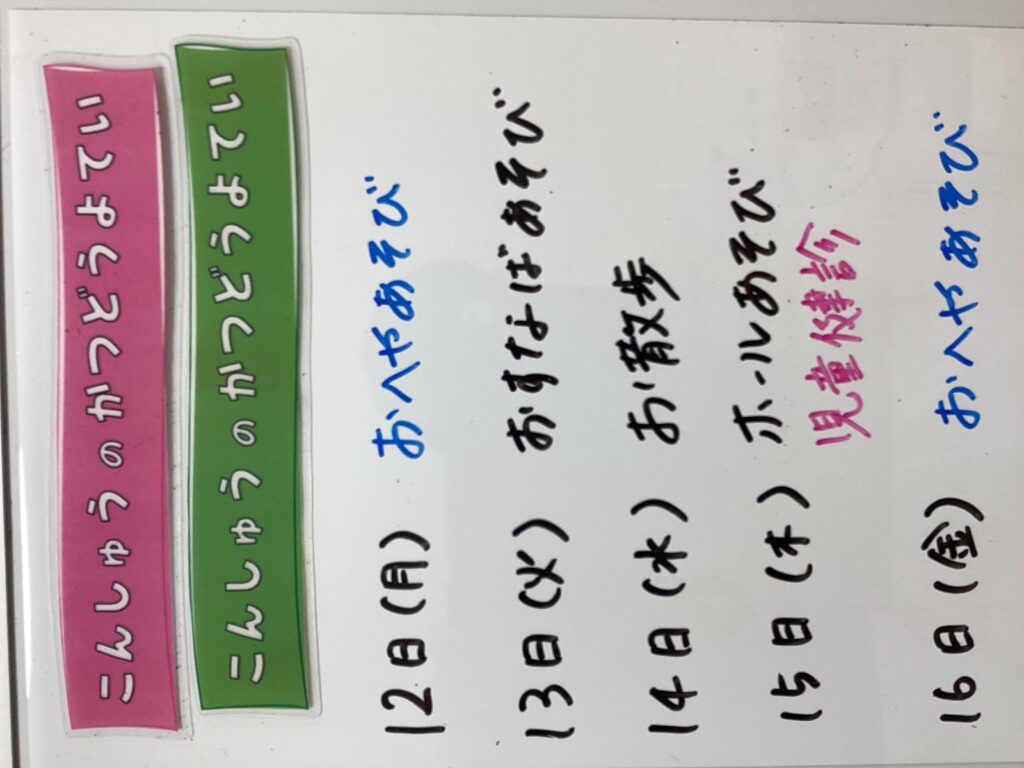 こんしゅうのかつどうよてい
こんしゅうのかつどうよてい
12日(月) おへやあそび
13日(火) おすなばあそび
14日(水) お散歩
15日(木) ホールあそび
児童健診
16日(金) おへやあそび